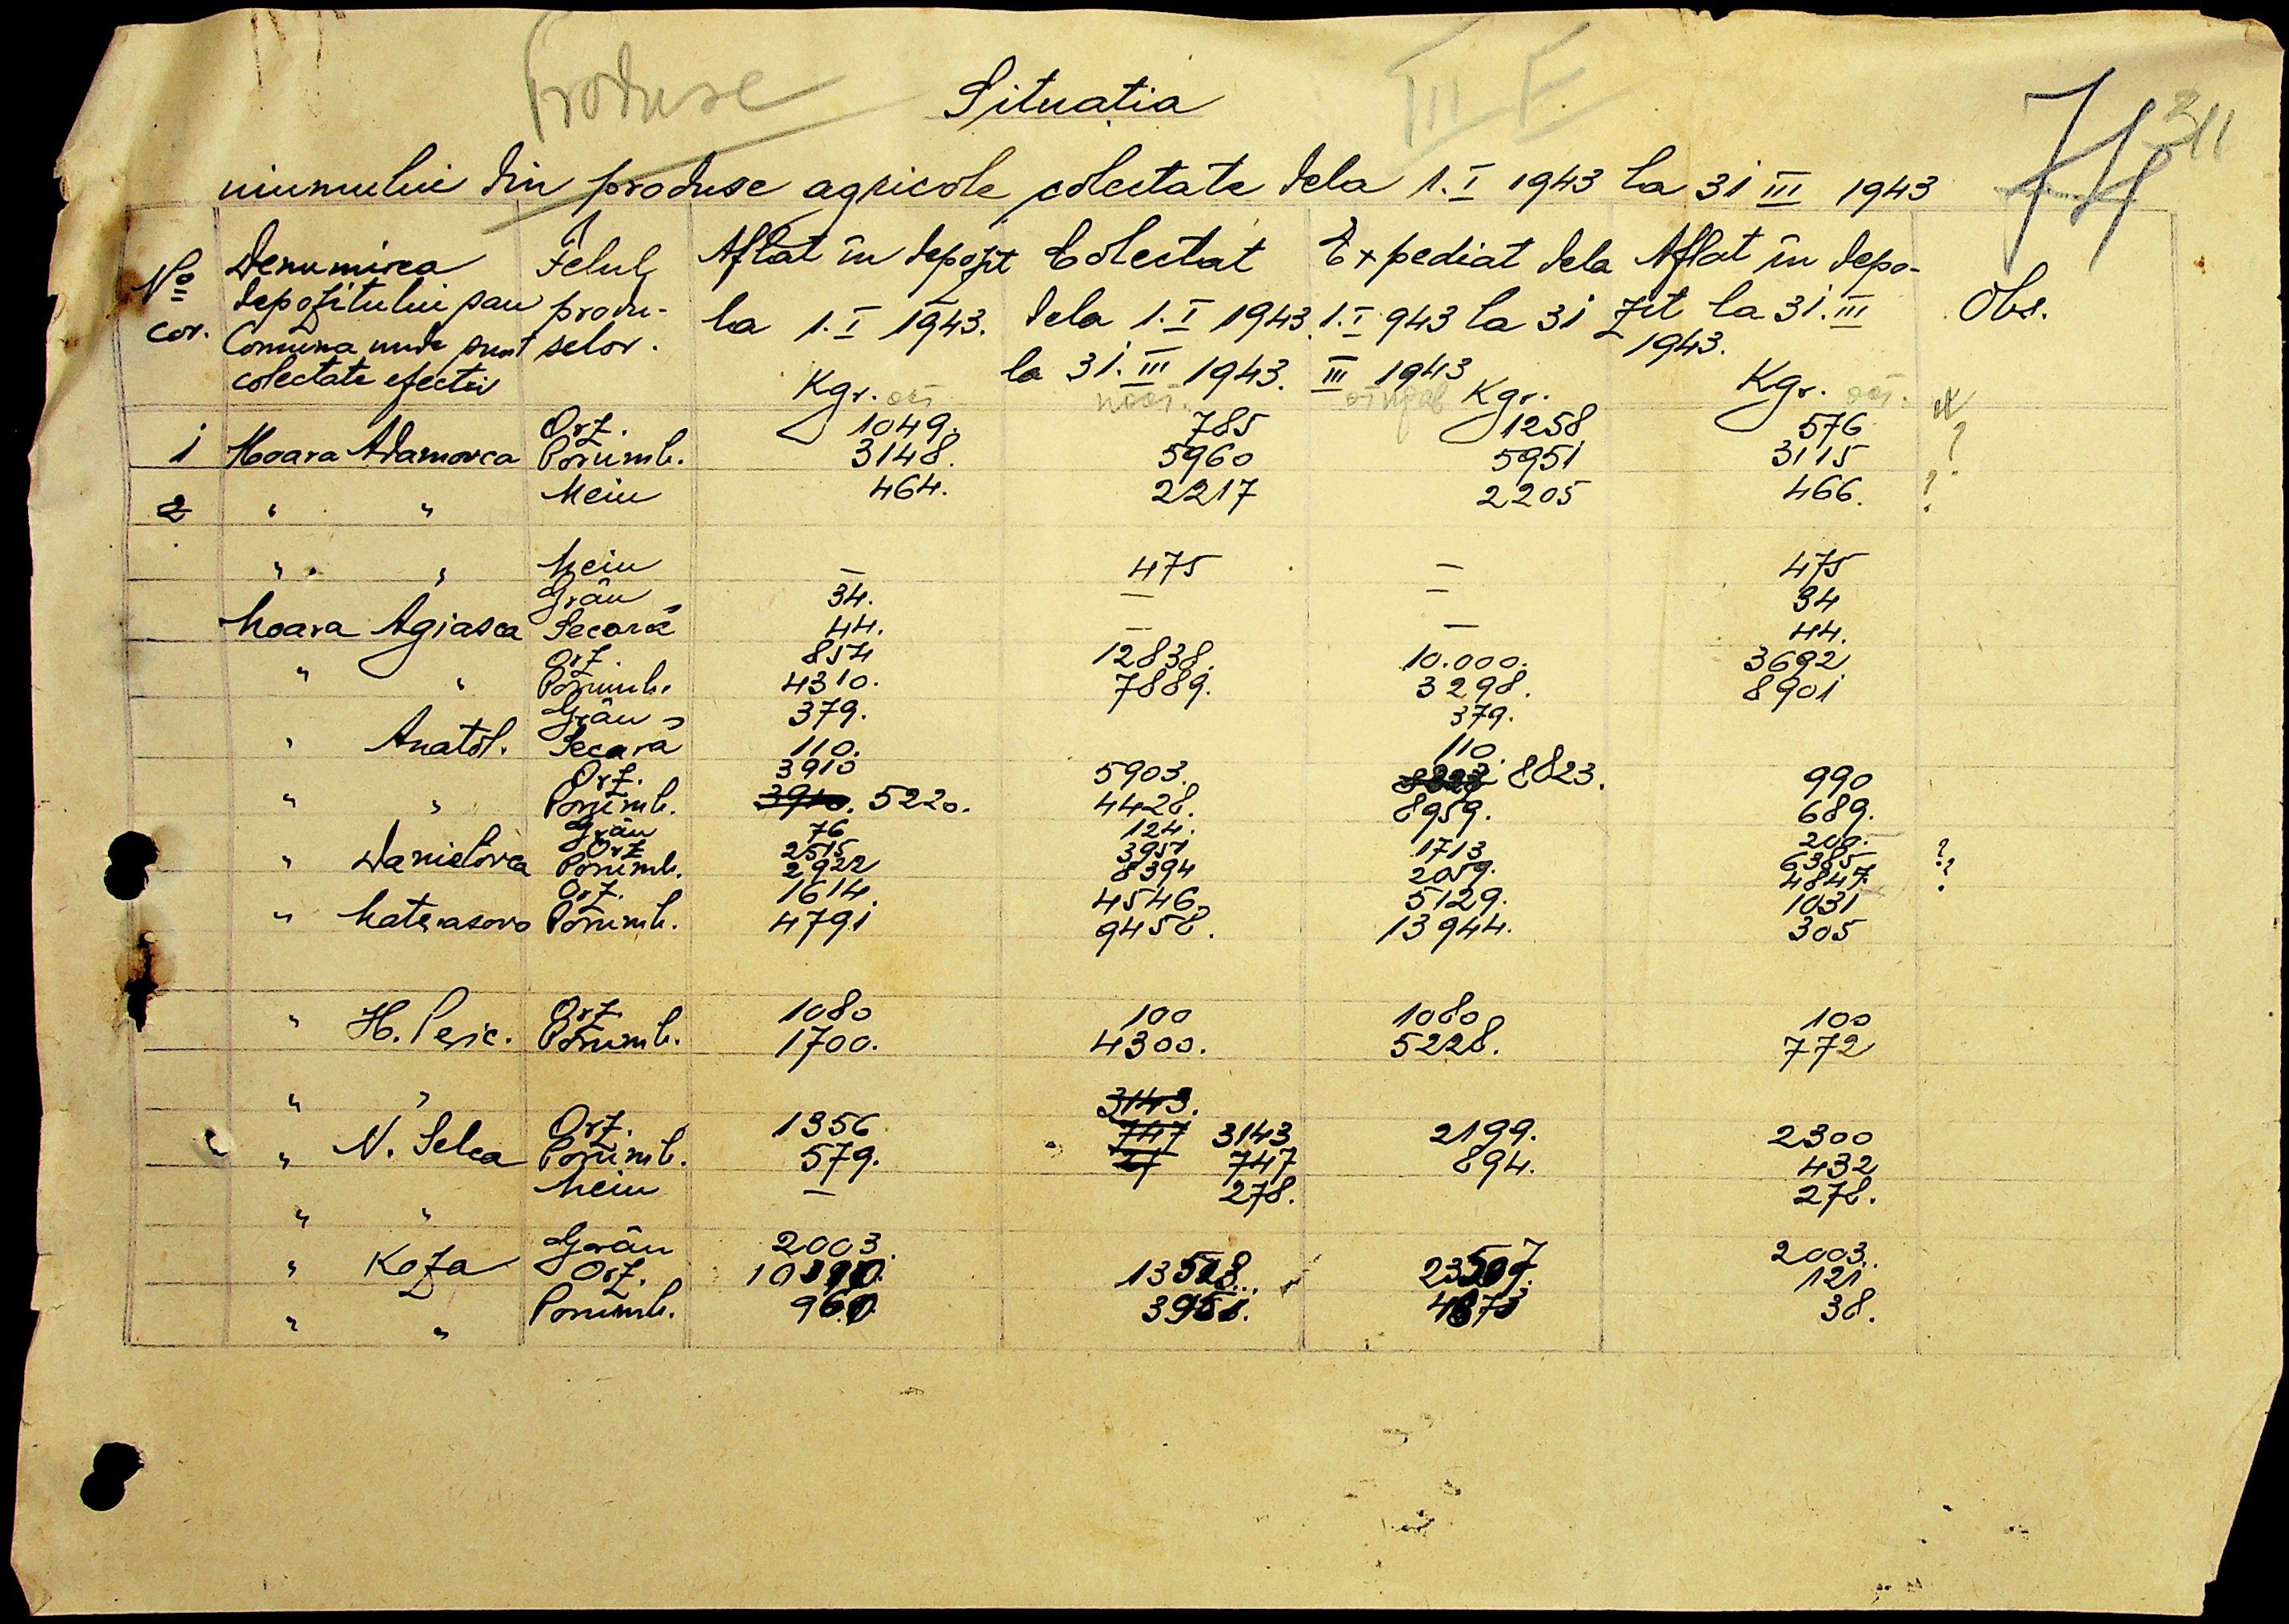 Produse
III F
311
Situatia
uiumului din produse agricole colectate dela 1.I 1943 la 31 III 1943
No cor.
Denumirea depozitului sau Comuna unde sunt colectate efectiv
Felul produselor.
Aflat in depozit la 1.I 1943. Kgr.
Colectat dela 1.I 1943 la 31.III 1943.
Expediat dela 1.I 943 la 31 III 1943 Kgr.
Aflat în depozit la 31.III 1943. Kgr.
Obs.
Orz. 1049. 785 1258 576
1 Moara Adamovca Porumb. 3148. 5960 5951 3115 ?
2 " " Meiu 464. 2217 2205 466. ?
" " Meiu — 475 — 475
Grâu 34. — — 34
Moara Agiasca Secară 44. — — 44.
Orz. 854 12838. 10.000. 3692
" " Porumb. 4310. 7889. 3298. 8901
Grâu 379. 379.
" Anatol. Secară 110. 110.
Orz. 3910 5903. 8823. 990
" " Porumb. 3910. 5220. 4428. 8959. 689.
Grâu 76 124. 200.
Orz 2515 3951 1713 6385 ?
" Danielovca Porumb. 2922 8394 2059. 4847. ?
Orz. 1614. 4546. 5129. 1031
" Materasovo Porumb. 4791 9458. 13944. 305
Orz. 1080 100 1080 100
" H. Peric. Porumb. 1700. 4300. 5228. 772
" " 3143.
Orz. 1356 747 3143 2199. 2300
" N. Selca Porumb. 579. 27 747 894. 432
Meiu — 278. 278.
" "
Grâu 2003. 2003.
" Koza Orz. 13508. 23507. 121
Porumb. 960. 3951. 4873 38.
" "